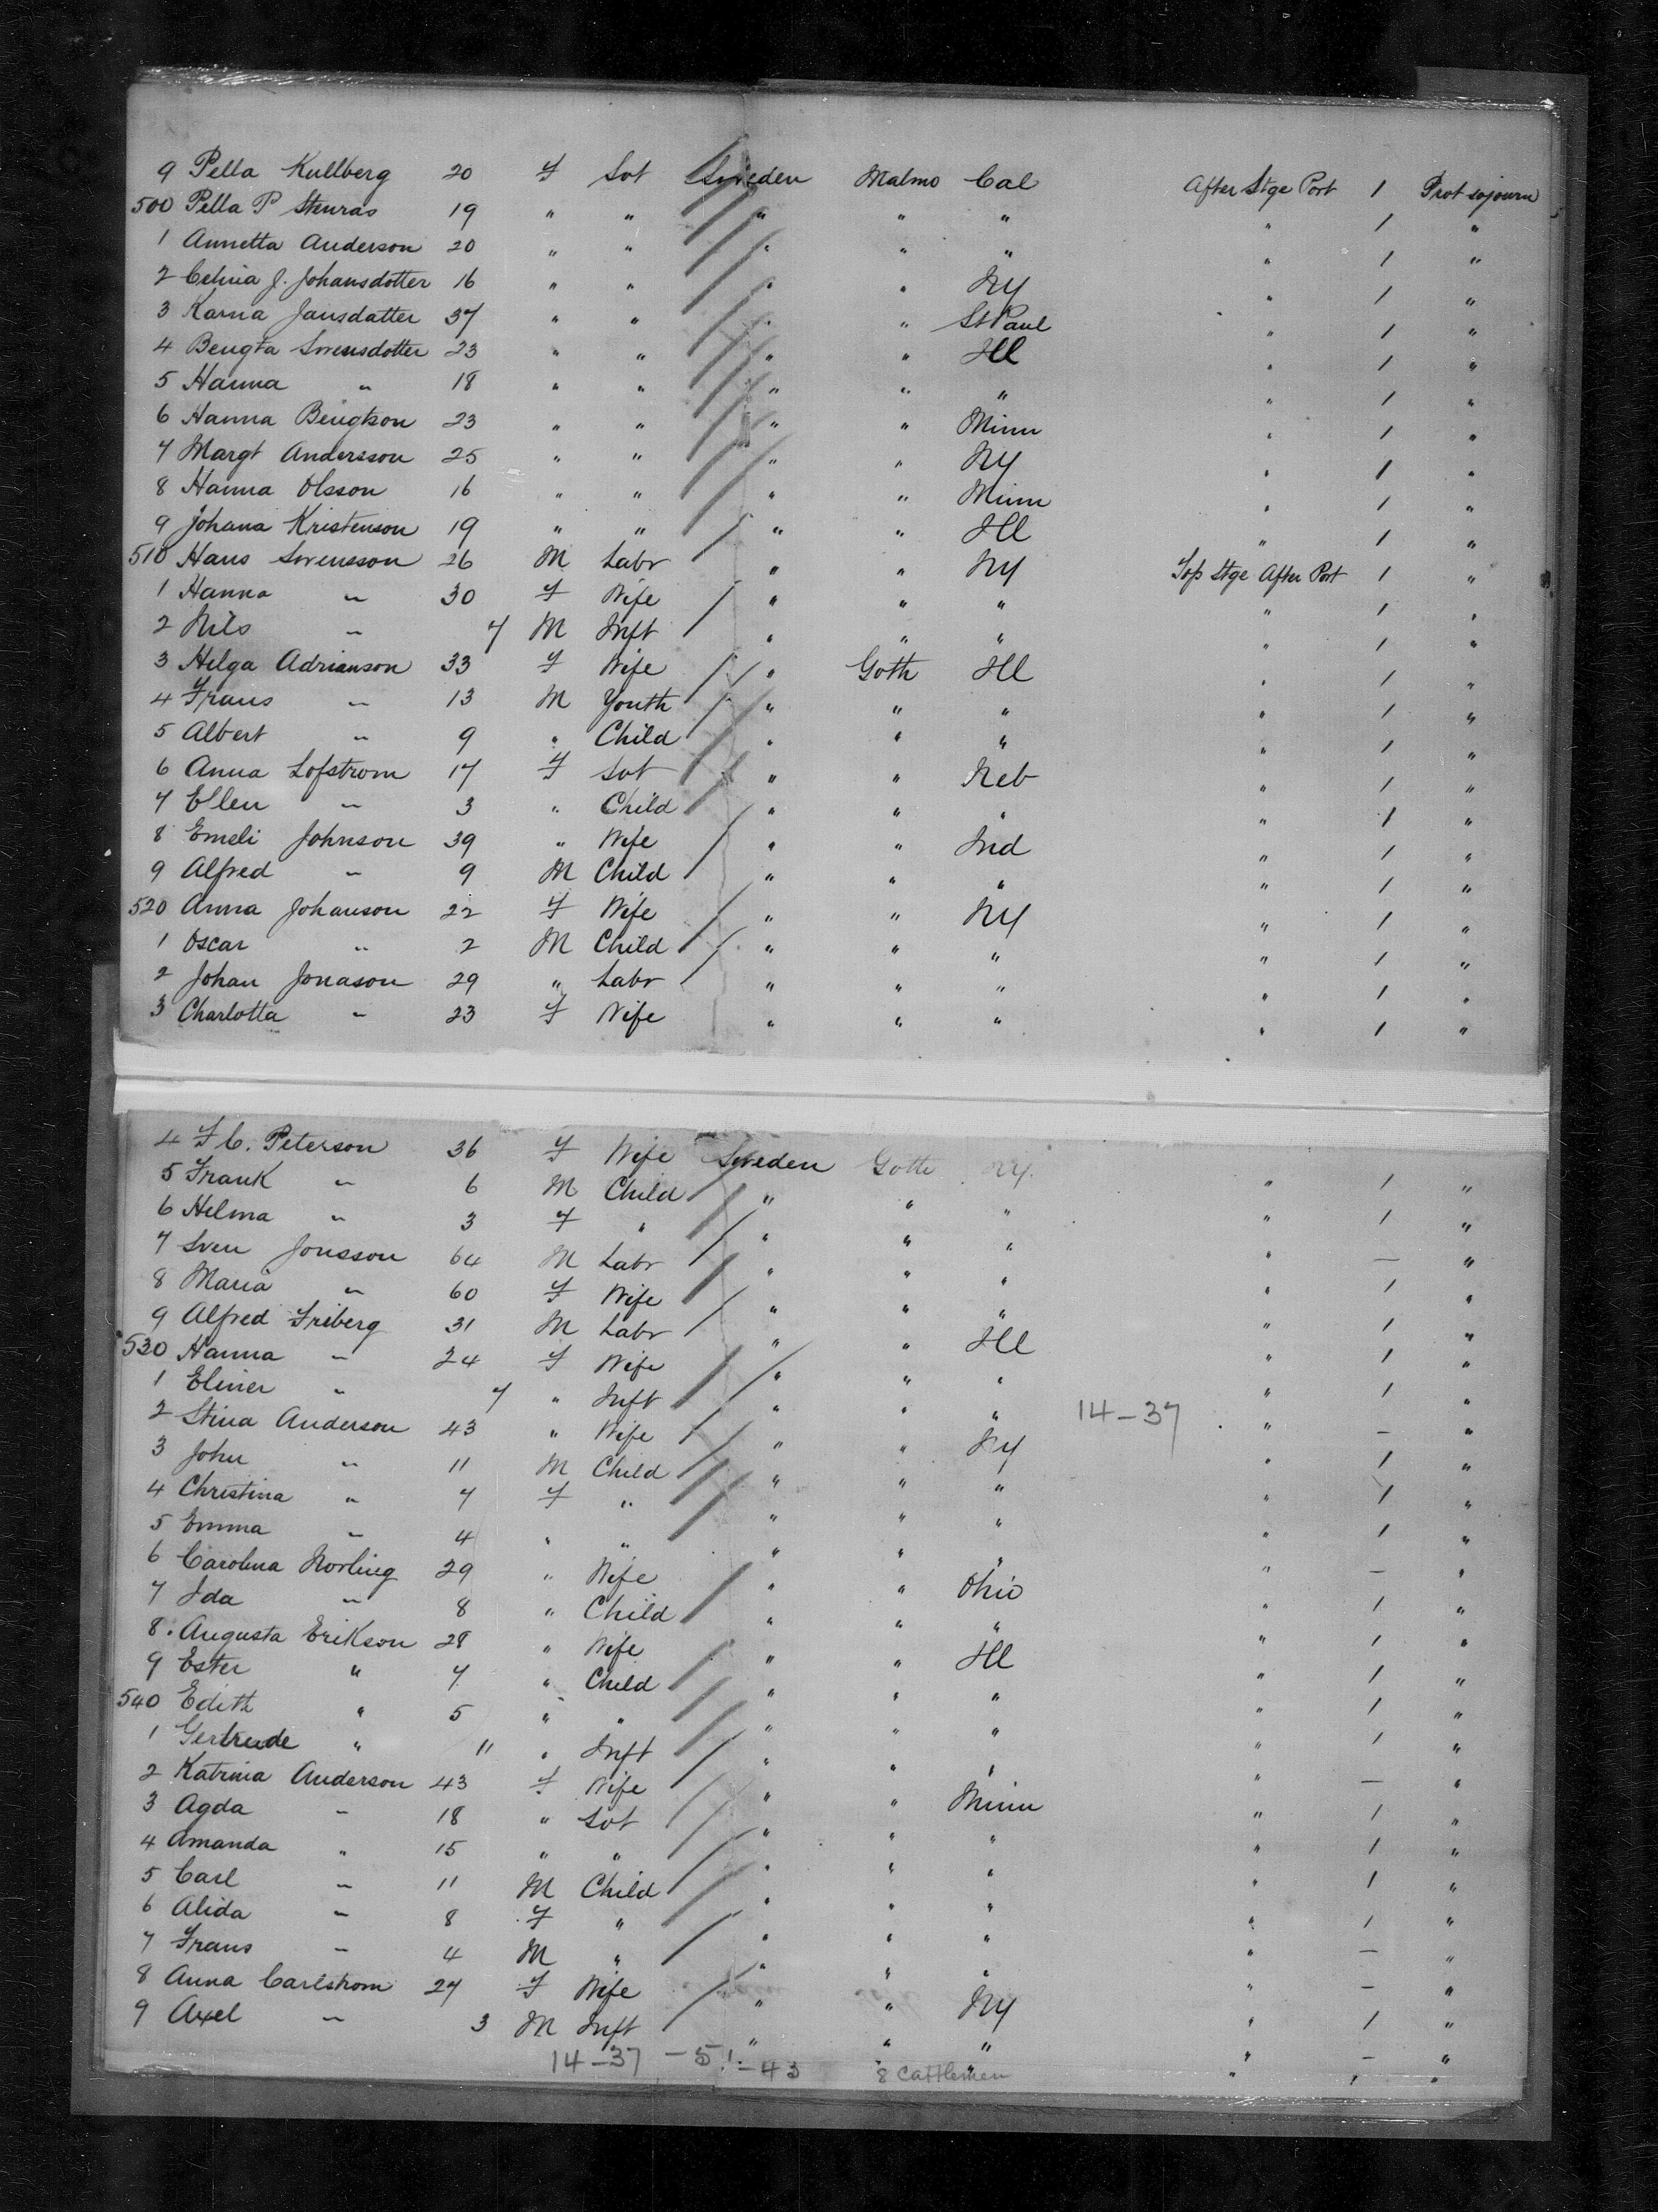 9 Pella Kullberg 20 F Svt Sweden Malmo Cal After Stge Port 1 Prot sojourn
500 Pella P Stenras 19 " " " " " " 1 "
1 Annetta Anderson 20 " " " " " " 1 "
2 Celina J. Johansdotter 16 " " " " NY " 1 "
3 Karna Jansdatter 37 " " " " St Paul " 1 "
4 Bengta Svensdotter 23 " " " " Ill " 1 "
5 Hanna " 18 " " " " " " 1 "
6 Hanna Bengtson 23 " " " " Minn " 1 "
7 Margt Andersson 25 " " " " NY " 1 "
8 Hanna Olsson 16 " " " " Minn " 1 "
9 Johana Kristenson 19 " " " " Ill " 1 "
510 Hans Svensson 26 M Labr " " NY Top Stge After Port 1 "
1 Hanna " 30 F Wife " " " " 1 "
2 Nils " 7 M Inft " " " " 1 "
3 Helga Adrianson 33 F Wife " Goth Ill " 1 "
4 Frans " 13 M Youth " " " " 1 "
5 Albert " 9 " Child " " " " 1 "
6 Anna Lofstrom 17 F Svt " " Neb " 1 "
7 Ellen " 3 " Child " " " " 1 "
8 Emeli Johnson 39 " Wife " " Ind " 1 "
9 Alfred " 9 M Child " " " " 1 "
520 Anna Johanson 22 F Wife " " NY " 1 "
1 Oscar " 2 M Child " " " " 1 "
2 Johan Jonason 29 " Labr " " " " 1 "
3 Charlotta " 23 F Wife " " " " 1 "
4 F C. Peterson 36 F Wife Sweden Goth NY " 1 "
5 Frank " 6 M Child " " " " 1 "
6 Helma " 3 F " " " " " — "
7 Sven Jonsson 64 M Labr " " " " 1 "
8 Maria " 60 F Wife " " " " 1 "
9 Alfred Friberg 31 M Labr " " Ill " 1 "
530 Hanna " 24 F Wife " " " " 1 "
1 Eliner " 7 " Inft " " " 14-37 " — "
2 Stina Anderson 43 " Wife " " NY " 1 "
3 John " 11 M Child " " " " 1 "
4 Christina " 7 F " " " " " 1 "
5 Emma " 4 " " " " " " — "
6 Carolina Norling 29 " Wife " " Ohio " 1 "
7 Ida " 8 " Child " " " " 1 "
8 Augusta Erikson 28 " Wife " " Ill " 1 "
9 Ester " 7 " Child " " " " 1 "
540 Edith " 5 " " " " " " 1 "
1 Gertrude " 11 " Inft " " " " — "
2 Katrina Anderson 43 F Wife " " Minn " 1 "
3 Agda " 18 " Svt " " " " 1 "
4 Amanda " 15 " " " " " " 1 "
5 Carl " 11 M Child " " " " 1 "
6 Alida " 8 F " " " " " — "
7 Frans " 4 M " " " " " — "
8 Anna Carlstrom 27 F Wife " " NY " 1 "
9 Axel " 3 M Inft " " " " — "
14-37 -51-43 8 Cattlemen